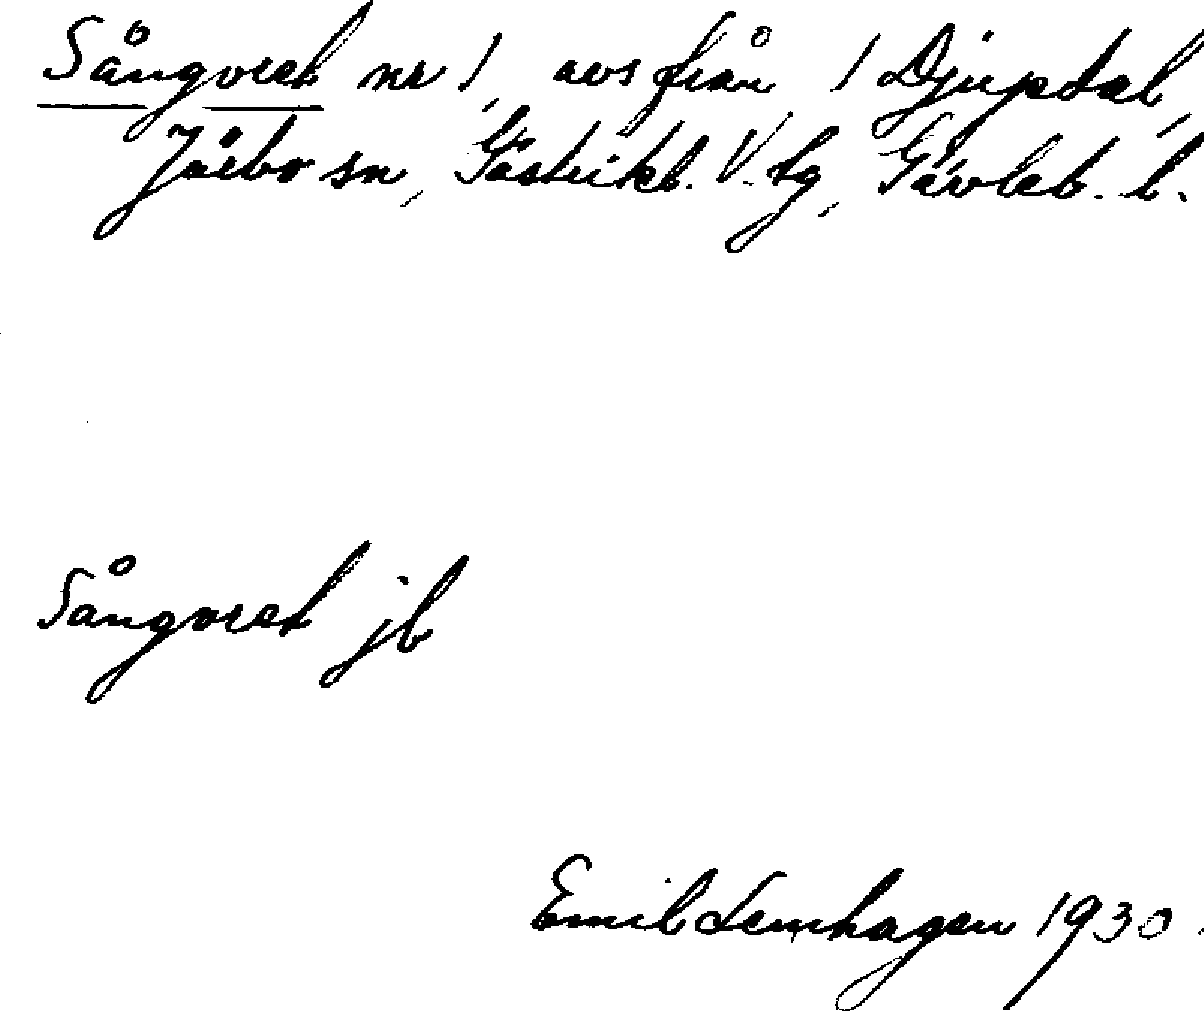 Sångvret nr 1, avs från 1 Djupdal,
Järbo sn, Gästrikl. V. tg, Gävleb. l.
Sångvret jb
Emil Lemhagen 1930.